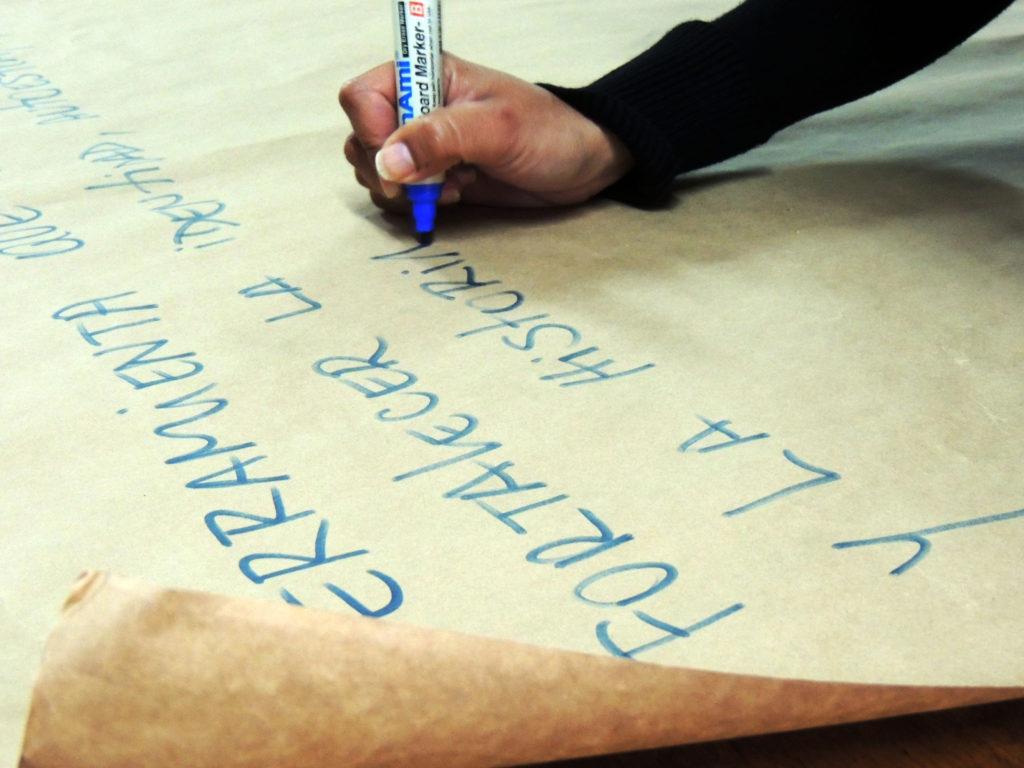 ERRAMiENTA QUE
FORTALECER LA iDENtiDAD,
Y LA HiStORiA
nAmi
oard Marker-B